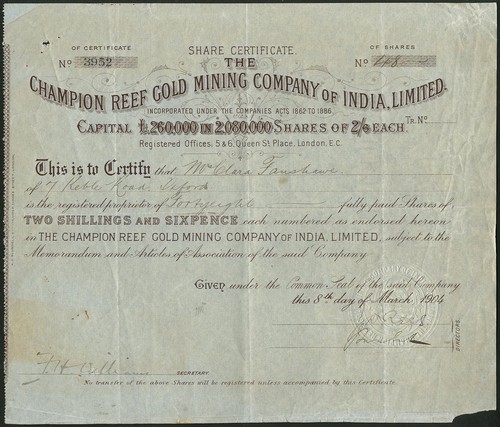 OF CERTIFICATE
SHARE CERTIFICATE.
OF SHARES
No 3952
THE
No 48
CHAMPION REEF GOLD MINING COMPANY OF INDIA, LIMITED.
INCORPORATED UNDER THE COMPANIES ACTS 1862 TO 1886
CAPITAL £260,000 IN 2,080,000 SHARES OF 2/6 EACH.
Tr. No
Registered Offices: 5 & 6, Queen St. Place, London, E.C.
This is to Certify that Mrs Clara Fanshawe
of 7 Keble Road Oxford
is the registered proprietor of Forty eight fully paid Shares of
TWO SHILLINGS AND SIXPENCE each numbered as endorsed hereon
in THE CHAMPION REEF GOLD MINING COMPANY OF INDIA, LIMITED, subject to the
Memorandum and Articles of Association of the said Company
Given under the Common Seal of the said Company
this 8th day of March 1904
DIRECTORS.
F. H. Williams
SECRETARY.
No transfer of the above Shares will be registered unless accompanied by this Certificate.